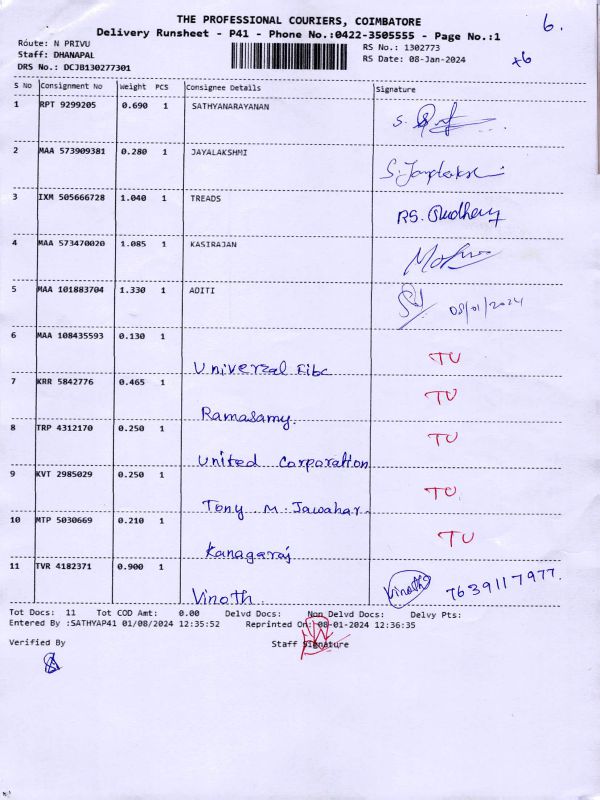 THE PROFESSIONAL COURIERS, COIMBATORE
6.
Delivery Runsheet - P41 - Phone No.:0422-3505555 - Page No.:1
Route: N PRIVU RS No.: 1302773
Staff: DHANAPAL RS Date: 08-Jan-2024 +6
DRS No.: DCJB130277301
S No Consignment No Weight PCS Consignee Details Signature
1 RPT 9299205 0.690 1 SATHYANARAYANAN S.
2 MAA 573909381 0.280 1 JAYALAKSHMI
3 IXM 505666728 1.040 1 TREADS RS.
4 MAA 573470020 1.085 1 KASIRAJAN
5 MAA 101883704 1.330 1 ADITI 08/01/2024
6 MAA 108435593 0.130 1 Universal Fibc TU
7 KRR 5842776 0.465 1 Ramasamy. TU
8 TRP 4312170 0.250 1 United Corporation TU
9 KVT 2985029 0.250 1 Tony M. Jawahar TU
10 MTP 5030669 0.210 1 Kanagaraj TU
11 TVR 4182371 0.900 1 Vinoth Vinoth 7639117977.
Tot Docs: 11 Tot COD Amt: 0.00 Delvd Docs: Non Delvd Docs: Delvy Pts:
Entered By :SATHYAP41 01/08/2024 12:35:52 Reprinted On: 08-01-2024 12:36:35
Verified By Staff Signature